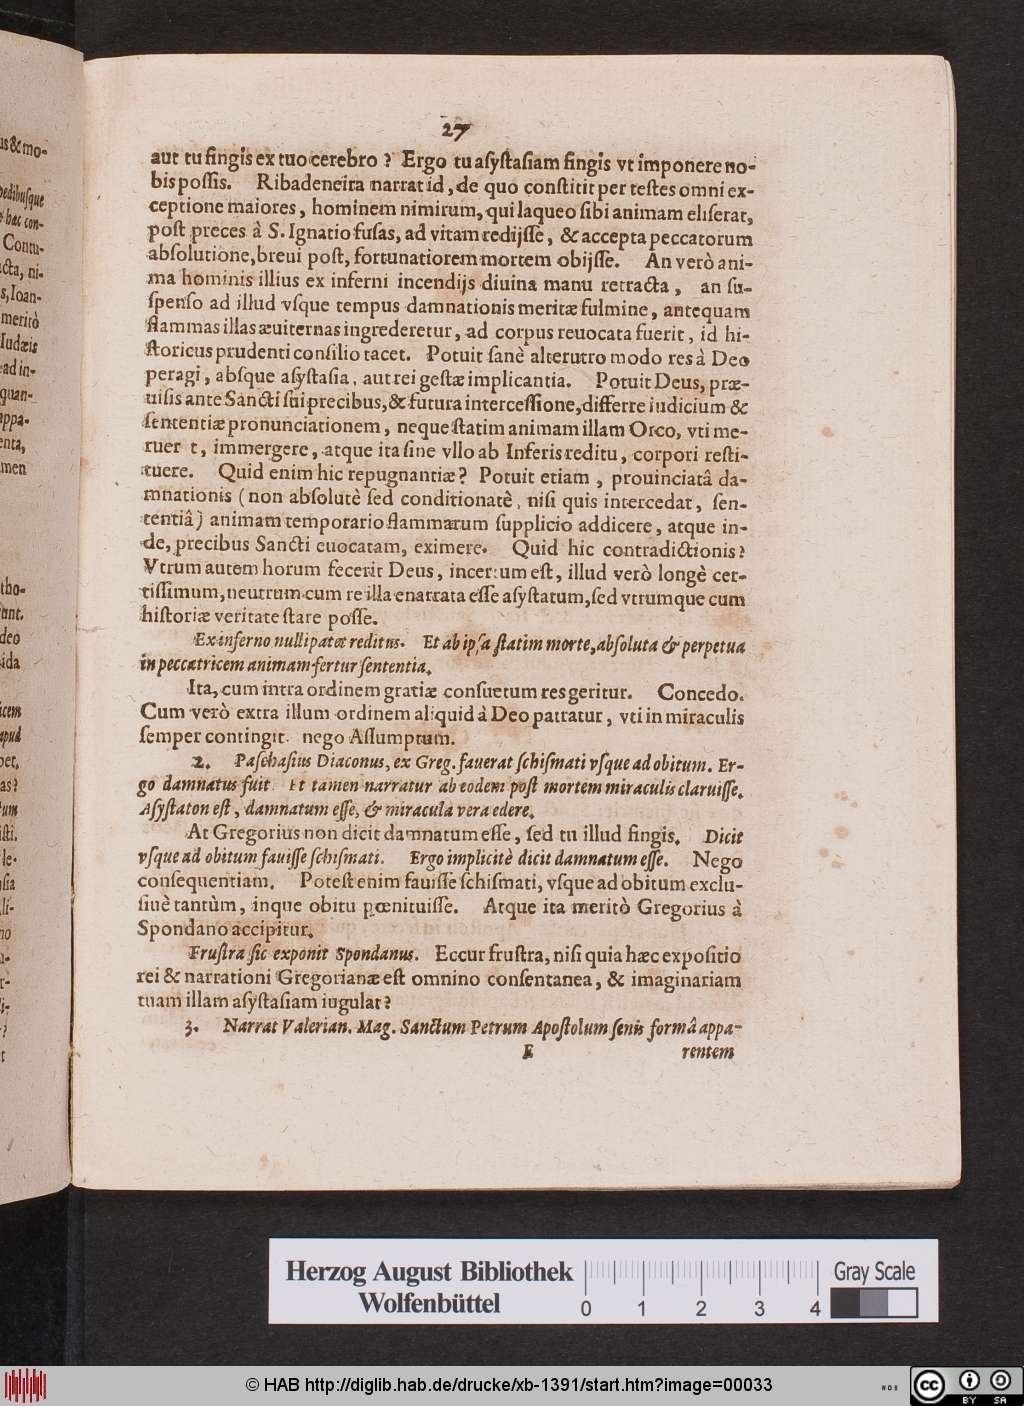 27
aut tu fingis ex tuo cerebro ? Ergo tu asystasiam fingis vt imponere no-
bis possis. Ribadeneira narrat id, de quo constitit per testes omni ex-
ceptione maiores, hominem nimirum, qui laqueo sibi animam eliserat,
post preces à S. Ignatio fusas, ad vitam redijsse, & accepta peccatorum
absolutione, breui post, fortunatiorem mortem obijsse. An verò ani-
ma hominis illius ex inferni incendijs diuina manu retracta, an su-
spenso ad illud vsque tempus damnationis meritæ fulmine, antequam
flammas illas æuiternas ingrederetur, ad corpus reuocata fuerit, id hi-
storicus prudenti consilio tacet. Potuit sanè alterutro modo res à Deo
peragi, absque asystasia, aut rei gestæ implicantia. Potuit Deus, præ-
uisis ante Sancti sui precibus, & futura intercessione, differre iudicium &
sententiæ pronunciationem, neque statim animam illam Orco, vti me-
ruer t, immergere, atque ita sine vllo ab Inferis reditu, corpori resti-
tuere. Quid enim hic repugnantiæ? Potuit etiam, prouinciatâ da-
mnationis (non absolutè sed conditionatè, nisi quis intercedat, sen-
tentiâ) animam temporario flammarum supplicio addicere, atque in-
de, precibus Sancti euocatam, eximere. Quid hic contradictionis?
Vtrum autem horum fecerit Deus, incertum est, illud verò longè cer-
tissimum, neutrum cum re illa enarrata esse asystatum, sed vtrumque cum
historiæ veritate stare posse.
Ex inferno nulli patet reditus. Et ab ipsa statim morte, absoluta & perpetua
in peccatricem animam fertur sententia.
Ita, cum intra ordinem gratiæ consuetum res geritur. Concedo.
Cum verò extra illum ordinem aliquid à Deo patratur, vti in miraculis
semper contingit. nego Assumptum.
2. Paschasius Diaconus, ex Greg. fauerat schismati vsque ad obitum. Er-
go damnatus fuit. Et tamen narratur ab eodem post mortem miraculis claruisse.
Asystaton est, damnatum esse, & miracula vera edere.
At Gregorius non dicit damnatum esse, sed tu illud fingis. Dicit
vsque ad obitum fauisse schismati. Ergo implicitè dicit damnatum esse. Nego
consequentiam. Potest enim fauisse schismati, vsque ad obitum exclu-
siuè tantùm, inque obitu pœnituisse. Atque ita meritò Gregorius à
Spondano accipitur.
Frustra sic exponit Spondanus. Eccur frustra, nisi quia hæc expositio
rei & narrationi Gregorianæ est omnino consentanea, & imaginariam
tuam illam asystasiam iugulat?
3. Narrat Valerian. Mag. Sanctum Petrum Apostolum senis formâ appa-
E rentem
us & mo-
pedibusque
hæc con-
Contu-
cta, ni-
s, Ioan-
meritò
Iudæis
ad in-
quan-
appa-
enta,
men
tho-
unt.
deo
ida
icem
apud
pet.
as?
tum
isti.
le-
sia
li-
no
Herzog August Bibliothek
Wolfenbüttel
0 1 2 3 4
Gray Scale
© HAB http://diglib.hab.de/drucke/xb-1391/start.htm?image=00033
cc BY SA